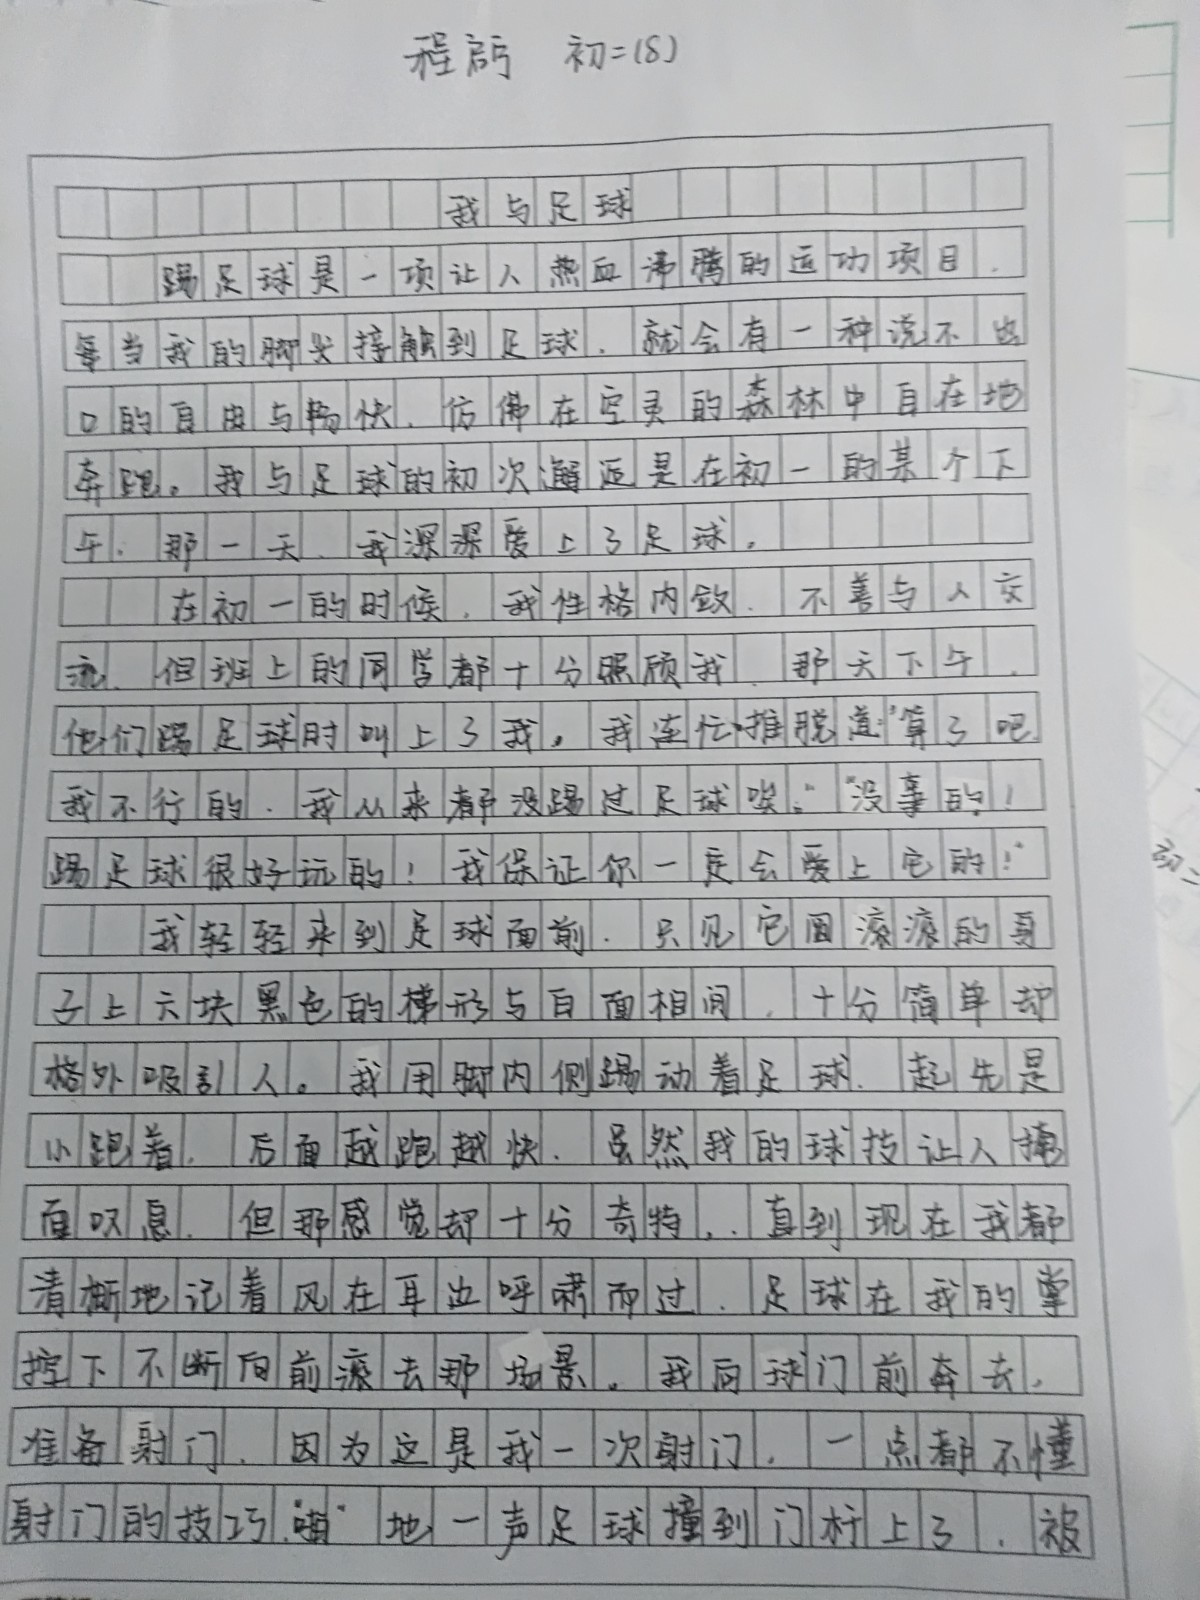 初二(8)
我与足球
踢足球是一项让人热血沸腾的运动项目.
每当我的脚尖接触到足球.就会有一种说不出
口的自由与畅快.仿佛在空灵的森林中自在地
奔跑。我与足球的初次邂逅是在初一的某个下
午.那一天、我深深爱上了足球。
在初一的时候.我性格内敛.不善与人交
流、但班上的同学都十分照顾我.那天下午.
他们踢足球时叫上了我。我连忙推脱道:"算了吧
我不行的.我从来都没踢过足球唉。""没事的!
踢足球很好玩的!我保证你一定会爱上它的!"
我轻轻来到足球面前.只见它圆滚滚的身
子上六块黑色的梯形与白面相间.十分简单却
格外吸引人。我用脚内侧踢动着足球.起先是
小跑着.后面越跑越快.虽然我的球技让人掩
面叹息.但那感觉却十分奇特..直到现在我都
清晰地记着风在耳边呼啸而过.足球在我的掌
控下不断向前滚去那场景。我向球门前奔去.
准备射门.因为这是我一次射门.一点都不懂
射门的技巧."嘣"地一声足球撞到门杆上了.被
初二